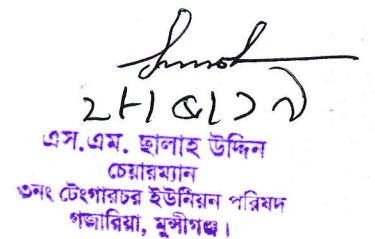 এস.এম. ছালাহ উদ্দিন
চেয়ারম্যান
৩নং টেংগারচর ইউনিয়ন পরিষদ
গজারিয়া, মুন্সীগঞ্জ।